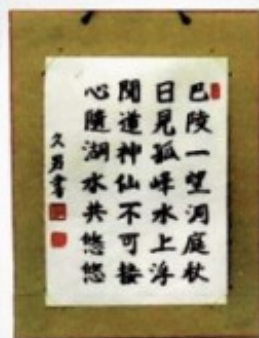 巴陵一望洞庭秋
日見孤峰水上浮
聞道神仙不可接
心隨湖水共悠悠
久勇書